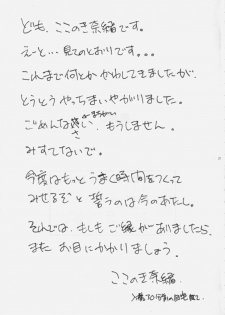 ども、ここのき奈緒です。
えーと…見てのとおりです…
これまで何とかかわしてきましたが、
とうとうやっちまいやがりました。
ごめんなさい、もうしません。
みすてないで。
今度はもっとうまく時間をつくって
みせるぞと誓うのは今のあたし。
それでは、もしもご縁がありましたら、
またお目にかかりましょう。
ここのき奈緒